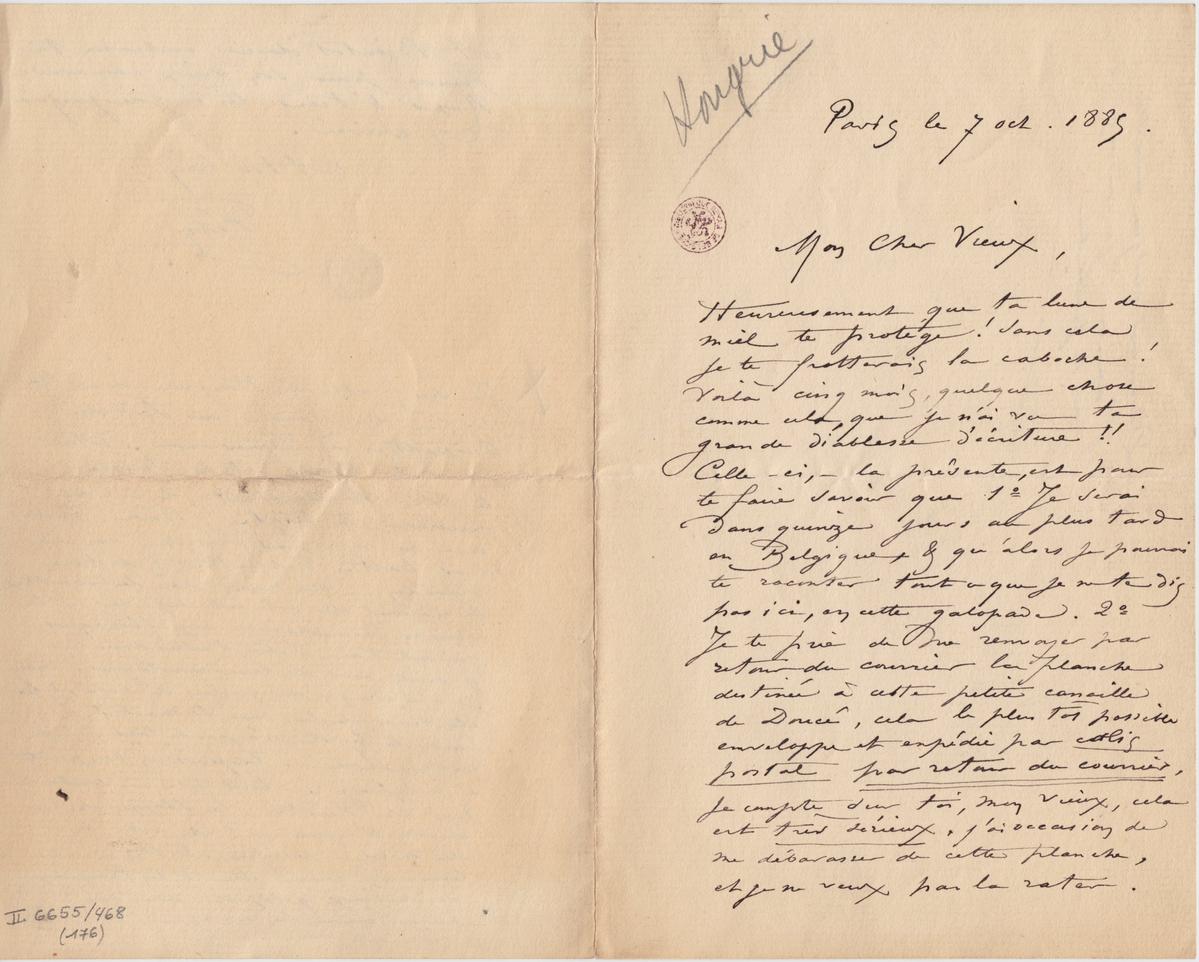 Hongrie
Paris le 7 oct. 1885.
Mon Cher Vieux,
Heureusement que ta lune de
miel te protège ! Sans cela
je te frotterais la caboche !
Voilà cinq mois, quelque chose
comme cela, que je n'ai vu ta
grande diablesse d'écriture !!
Celle-ci, – la présente, est pour
te faire savoir que 1º Je serai
dans quinze jours au plus tard
en Belgique, & qu'alors je pourrai
te raconter tout ce que je ne te dis
pas ici, en cette galopade. 2º
Je te prie de me renvoyer par
retour du courrier la planche
destinée à cette petite canaille
de Doucé, cela le plus tôt possible
enveloppe et expédie par colis
postal par retour du courrier,
je compte sur toi, mon vieux, cela
est très sérieux, j'ai occasion de
me débarasser de cette planche,
et je ne veux pas la rater.
II 6655/468
(176)